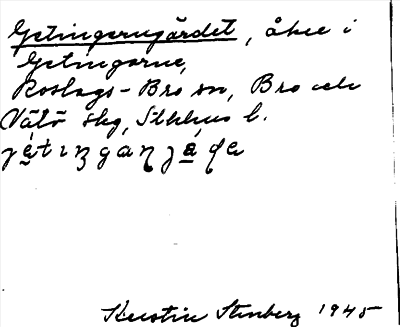 Getingarnegärdet, åker i
Getingarne,
Roslags-Bro sn, Bro och
Vätö skg, Sthlms l.
Kerstin Stenberg 1945